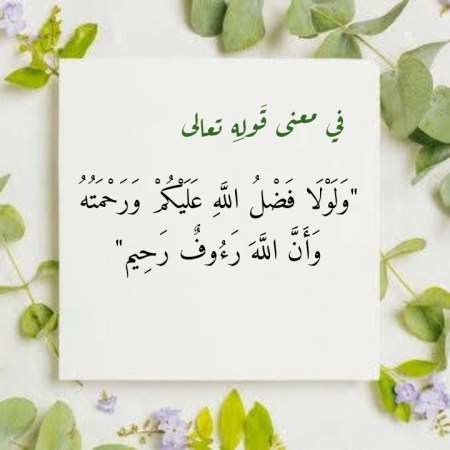 في معنى قَولِهِ تعالى
"وَلَوْلَا فَضْلُ اللَّهِ عَلَيْكُمْ وَرَحْمَتُهُ
وَأَنَّ اللَّهَ رَءُوفٌ رَحِيم"